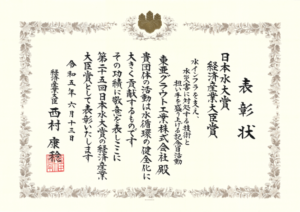 表彰状
日本水大賞
経済産業大臣賞
水インフラを支え、
水災害に対処する技術と
担い手を盛り上げる記念日活動
東亜グラウト工業株式会社殿
貴団体の活動は水循環の健全化に
大きく貢献するものです
その功績に敬意を表しここに
第二十五回日本水大賞の経済産業
大臣賞として表彰いたします
令和五年六月十三日
経済産業大臣 西村康稔